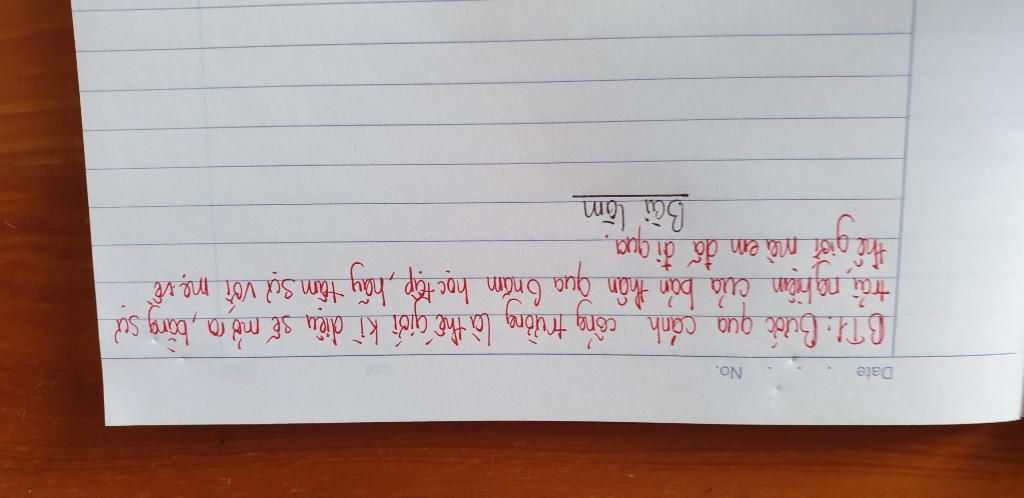 Date . . . No.
BT1: Bước qua cánh cổng trường là thế giới kì diệu sẽ mở ra, bằng sự
trải nghiệm của bản thân qua 6 năm học tập, hãy tâm sự với mẹ về
thế giới mà em đã đi qua.
Bài làm